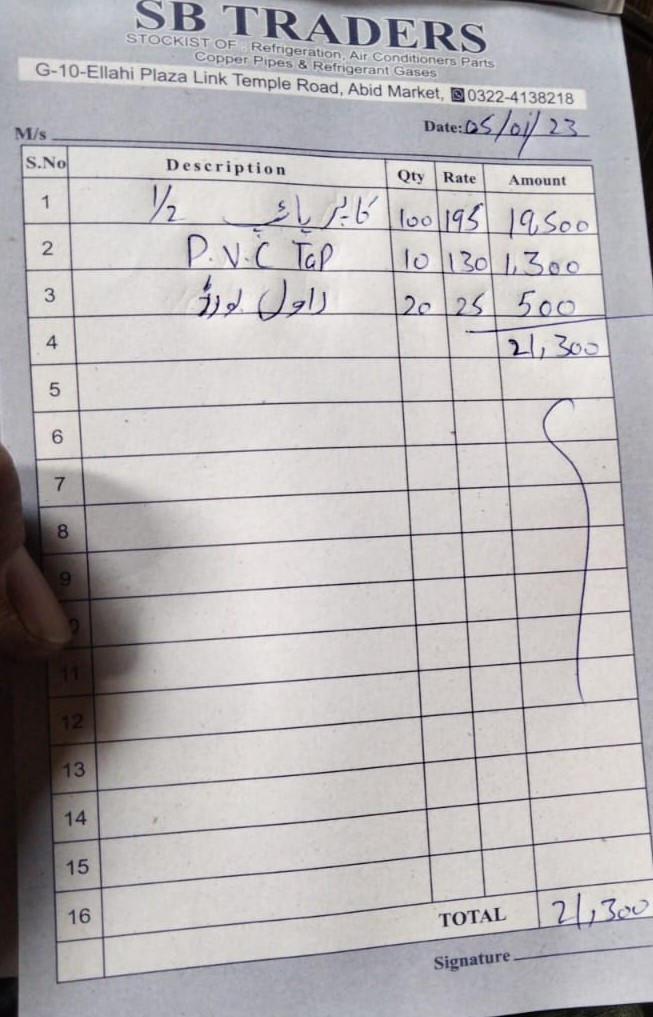 SB TRADERS
STOCKIST OF : Refrigeration, Air Conditioners Parts
Copper Pipes & Refrigerant Gases
G-10-Ellahi Plaza Link Temple Road, Abid Market, 0322-4138218
Date: 05/01/23
M/s
S.No Description Qty Rate Amount
1 1/2 کاپر پائپ 100 195 19,500
2 P.V.C Tap 10 130 1,300
3 راول 20 25 500
4 21,300
5
6
7
8
9
11
12
13
14
15
16 TOTAL 21,300
Signature